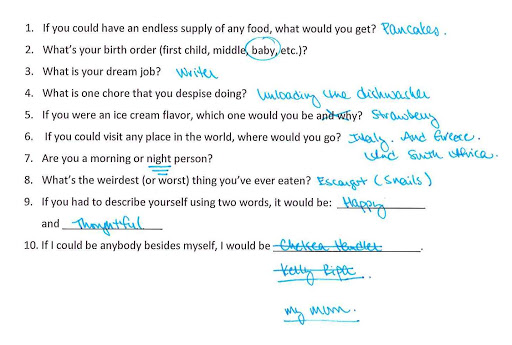 1. If you could have an endless supply of any food, what would you get? Pancakes.
2. What's your birth order (first child, middle, baby, etc.)?
3. What is your dream job? Writer
4. What is one chore that you despise doing? Unloading the dishwasher
5. If you were an ice cream flavor, which one would you be and why? Strawberry
6. If you could visit any place in the world, where would you go? Italy. And Greece.
And South Africa.
7. Are you a morning or night person?
8. What's the weirdest (or worst) thing you've ever eaten? Escargot (Snails)
9. If you had to describe yourself using two words, it would be: Happy
and Thoughtful
10. If I could be anybody besides myself, I would be Chelsea Handler.
Kelly Ripa.
my mom.